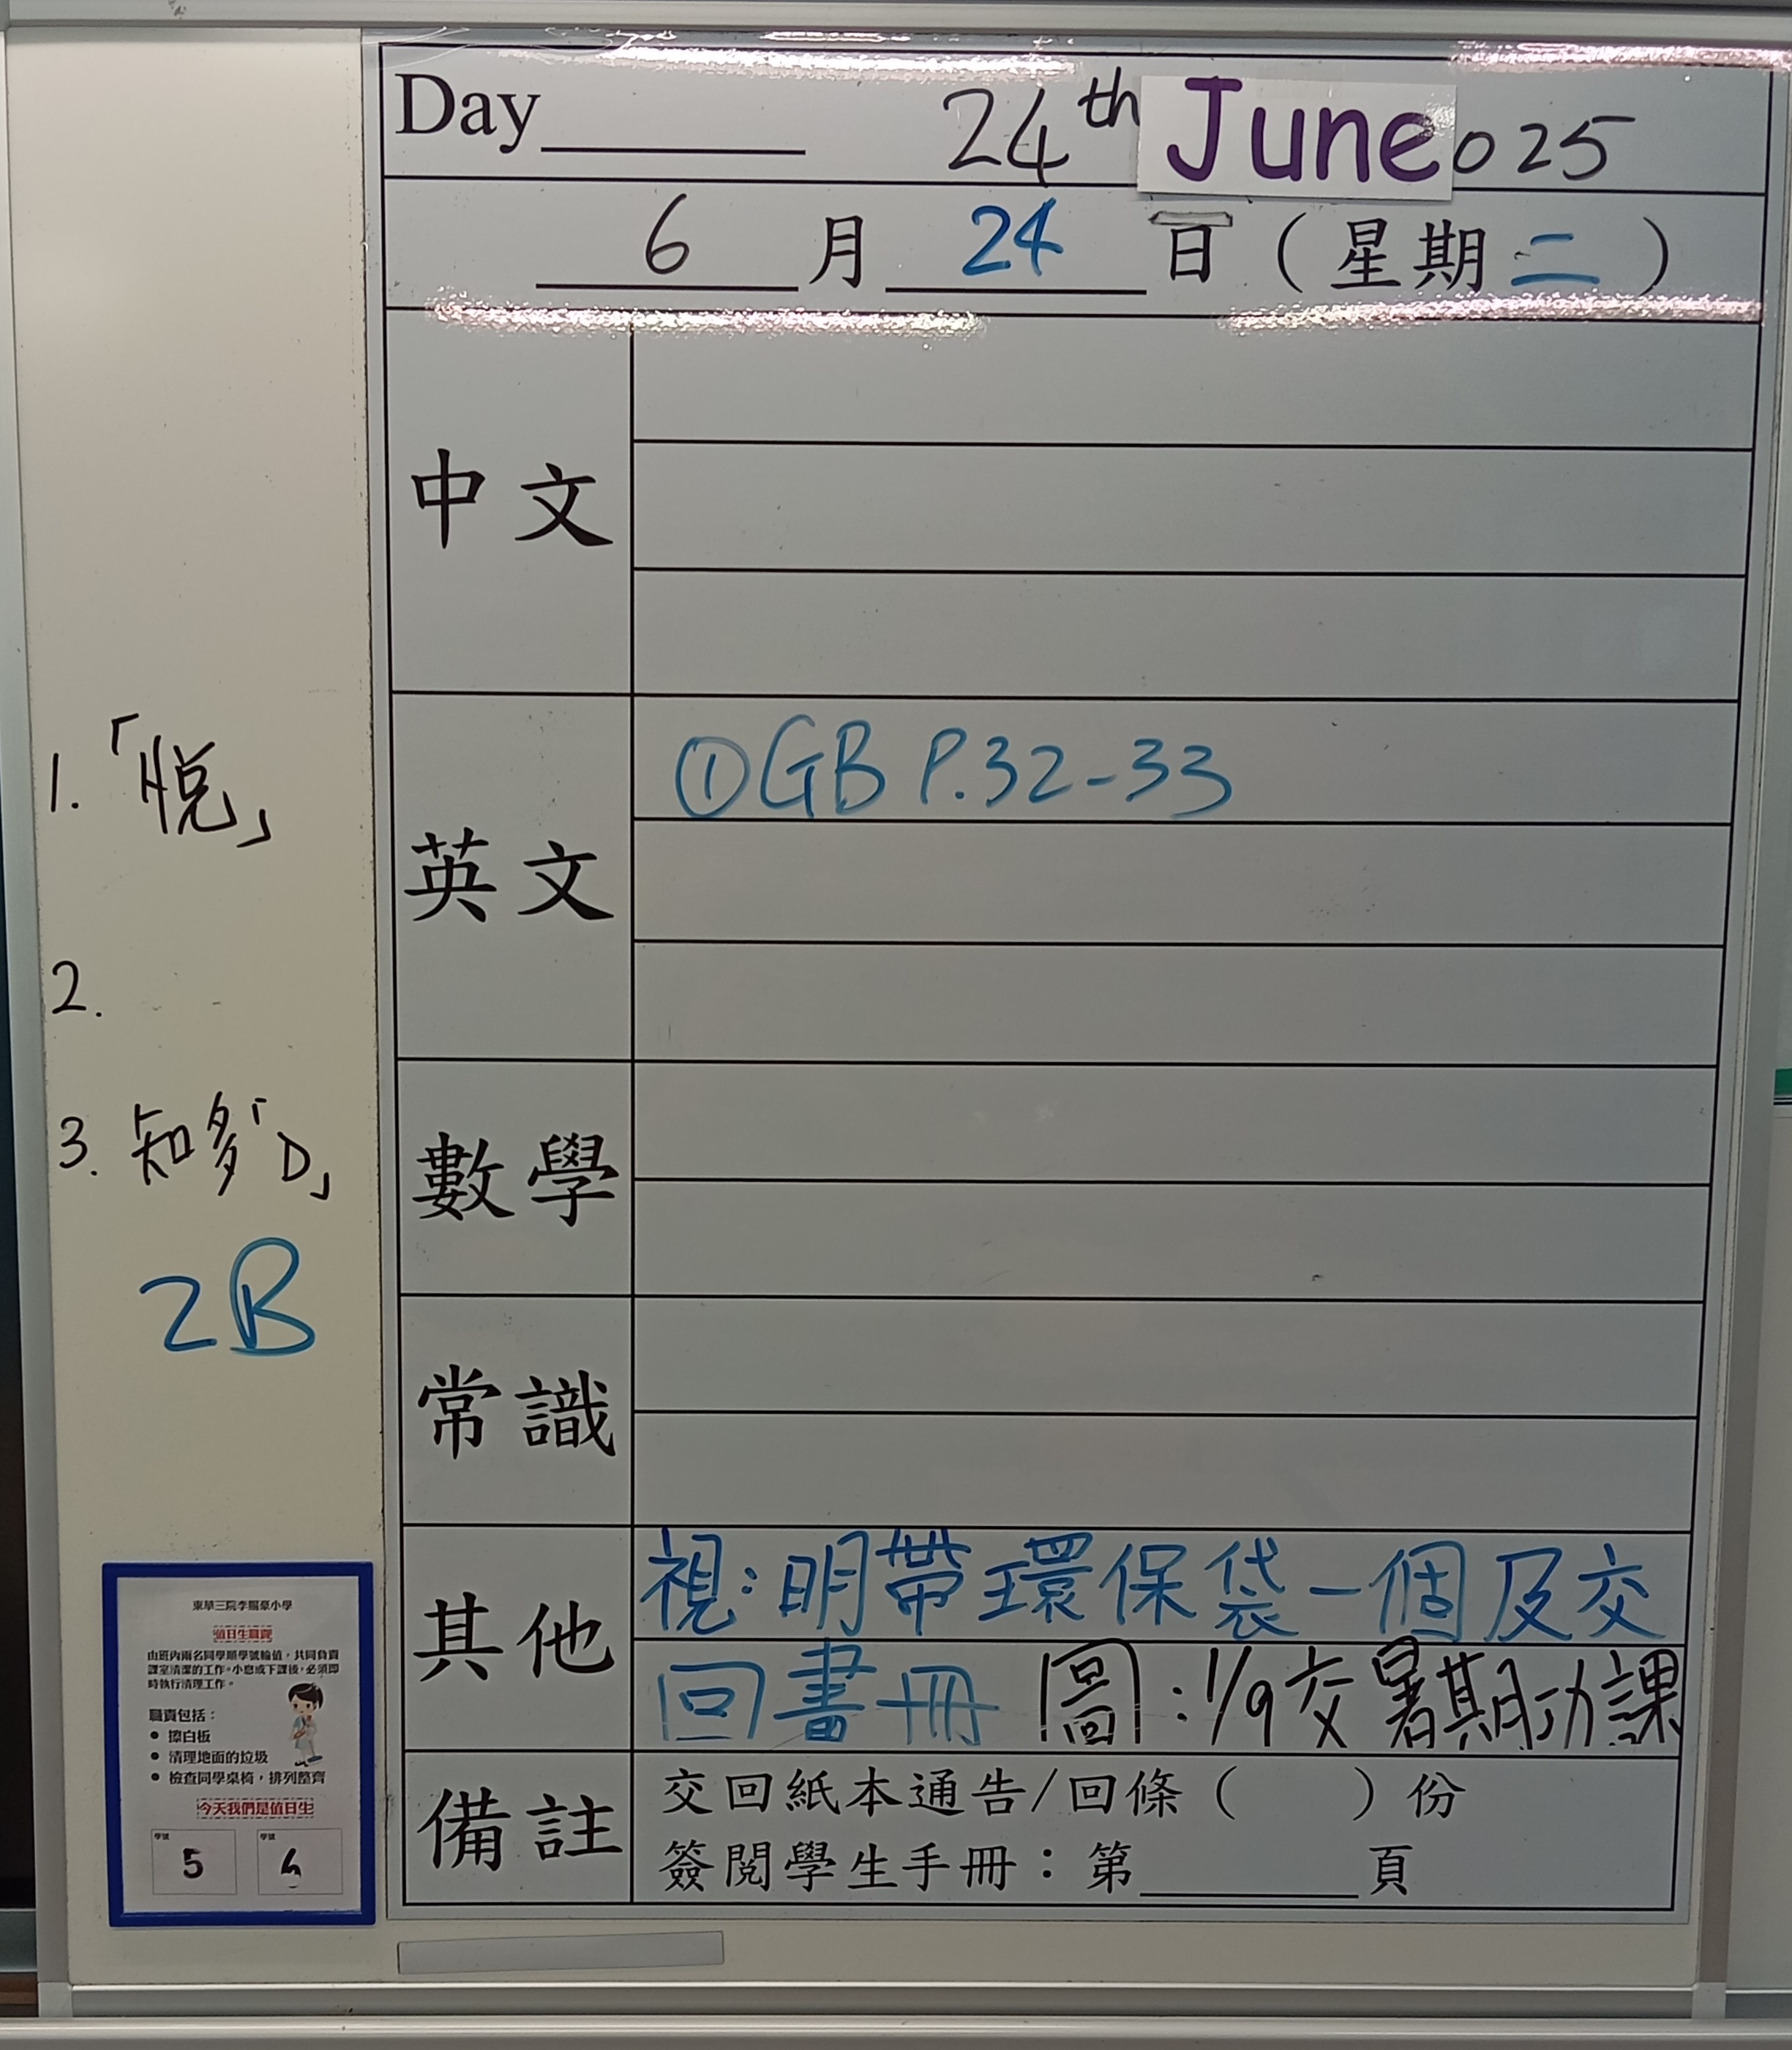 Day______ 24th June 025
6 月 24 日 (星期二)
中文
英文
①GB P.32-33
數學
常識
其他
視:明帶環保袋一個及交
回畫冊 圖:1/9交暑期功課
備註
交回紙本通告/回條( )份
簽閱學生手冊:第______頁
1.「悅」
2.
3. 知多「D」
2B
東華三院李賜豪小學
值日生職責
由班內兩名同學順學號輪值,共同負責
課室清潔的工作。小息或下課後,必須即
時執行清理工作。
職責包括:
• 擦白板
• 清理地面的垃圾
• 檢查同學桌椅,排列整齊
今天我們是值日生
學號 學號
5